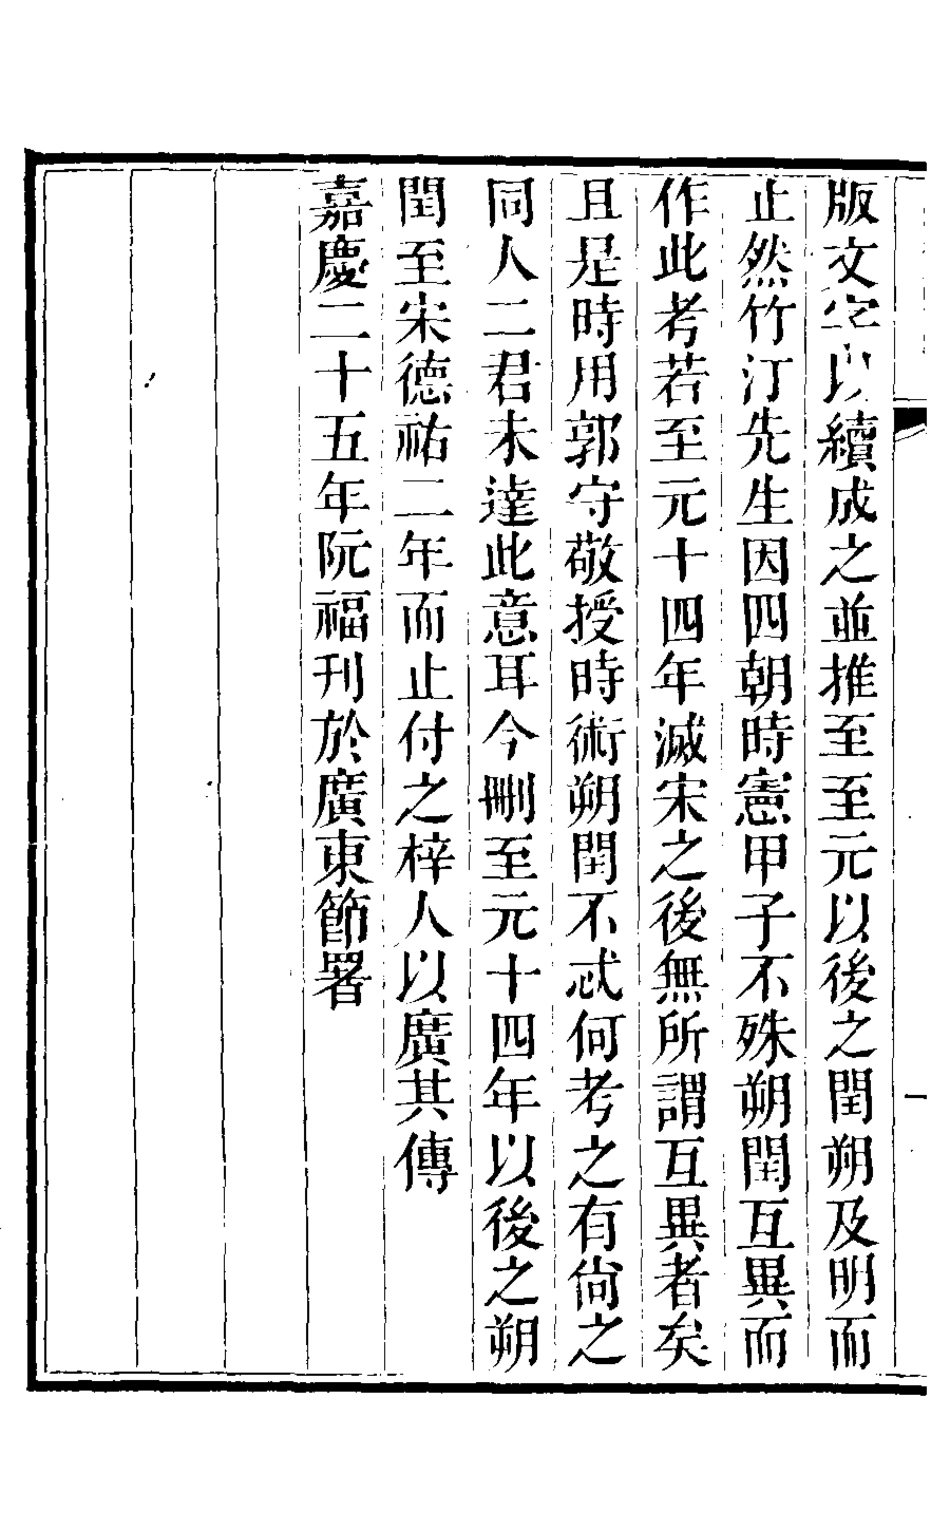 版文字以續成之並推至至元以後之閏朔及明而
止然竹汀先生因四朝時憲甲子不殊朔閏互異而
作此考若至元十四年滅宋之後無所謂互異者矣
且是時用郭守敬授時術朔閏不忒何考之有尙之
同人二君未達此意耳今刪至元十四年以後之朔
閏至宋德祐二年而止付之梓人以廣其傳
嘉慶二十五年阮福刊於廣東節署